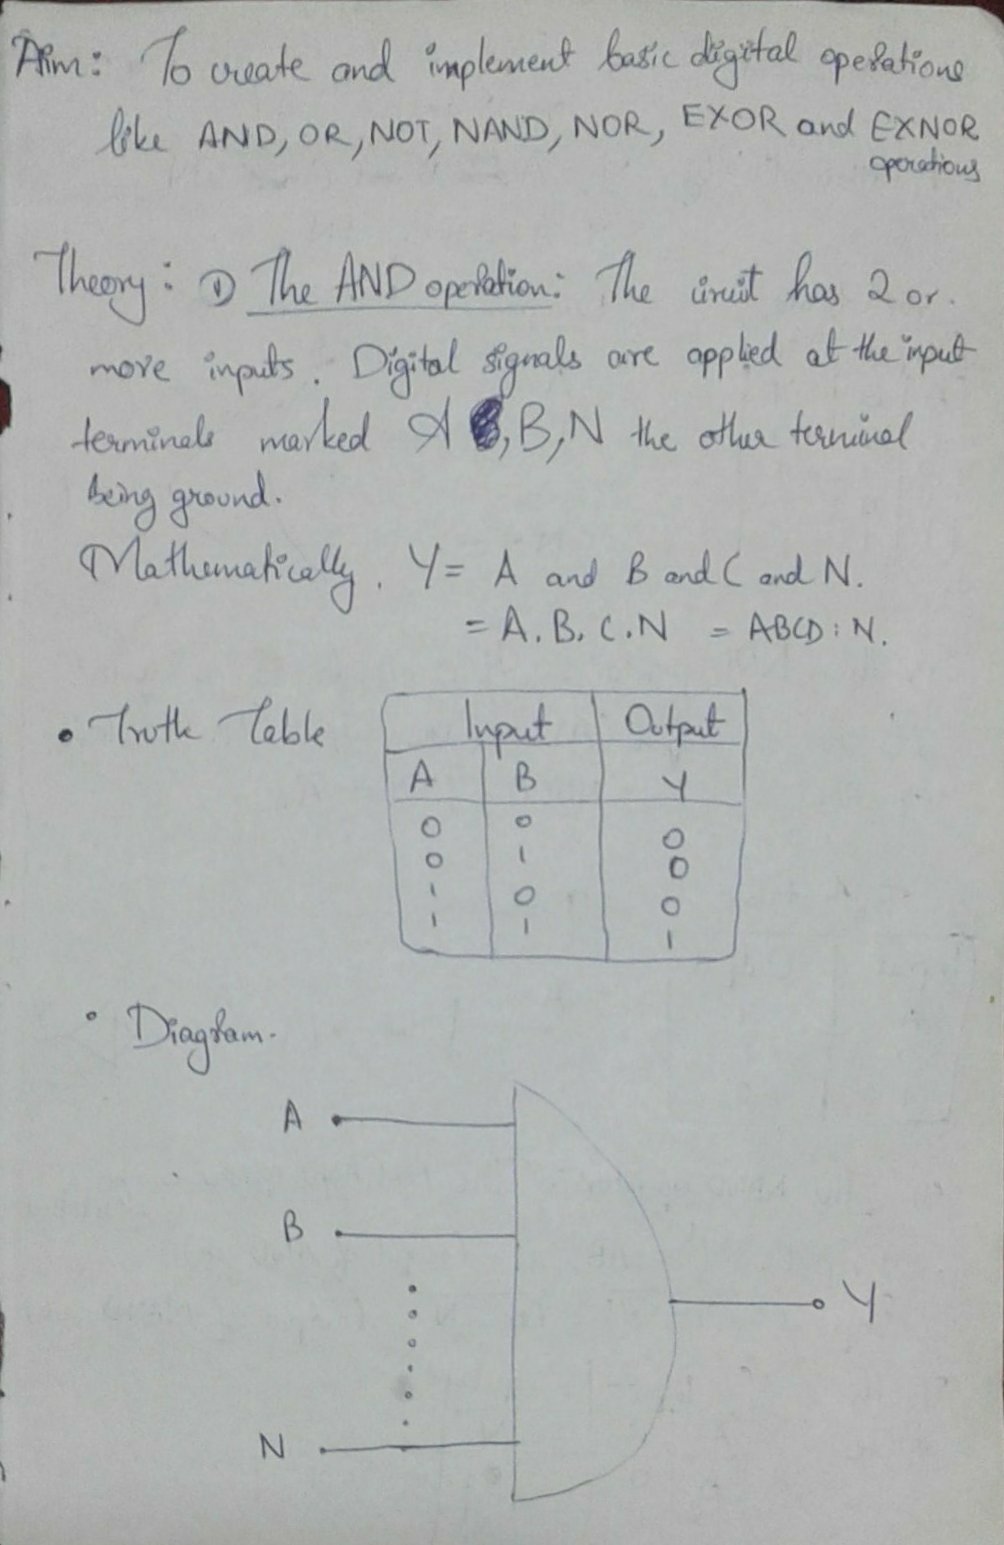 Aim: To create and implement basic digital operations
like AND, OR, NOT, NAND, NOR, EXOR and EXNOR
operations
Theory: ① The AND operation: The circuit has 2 or.
more inputs. Digital signals are applied at the input
terminals marked A , B, N the other terminal
being ground.
Mathematically. Y = A and B and C and N.
= A. B. C. N = ABCD : N.
• Truth Table
Input Output
A B Y
0 0 0
0 1 0
1 0 0
1 1 1
• Diagram.
A
B
Y
N